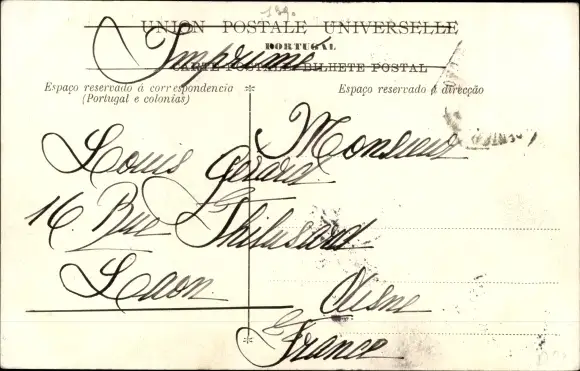 UNION POSTALE UNIVERSELLE
PORTUGAL
Imprimé
CARTE POSTALE BILHETE POSTAL
Espaço reservado á correspondencia
(Portugal e colonias)
Espaço reservado á direcção
Monsieur
Louis Gérard
16 Rue Thibesard
Laon Aisne
France